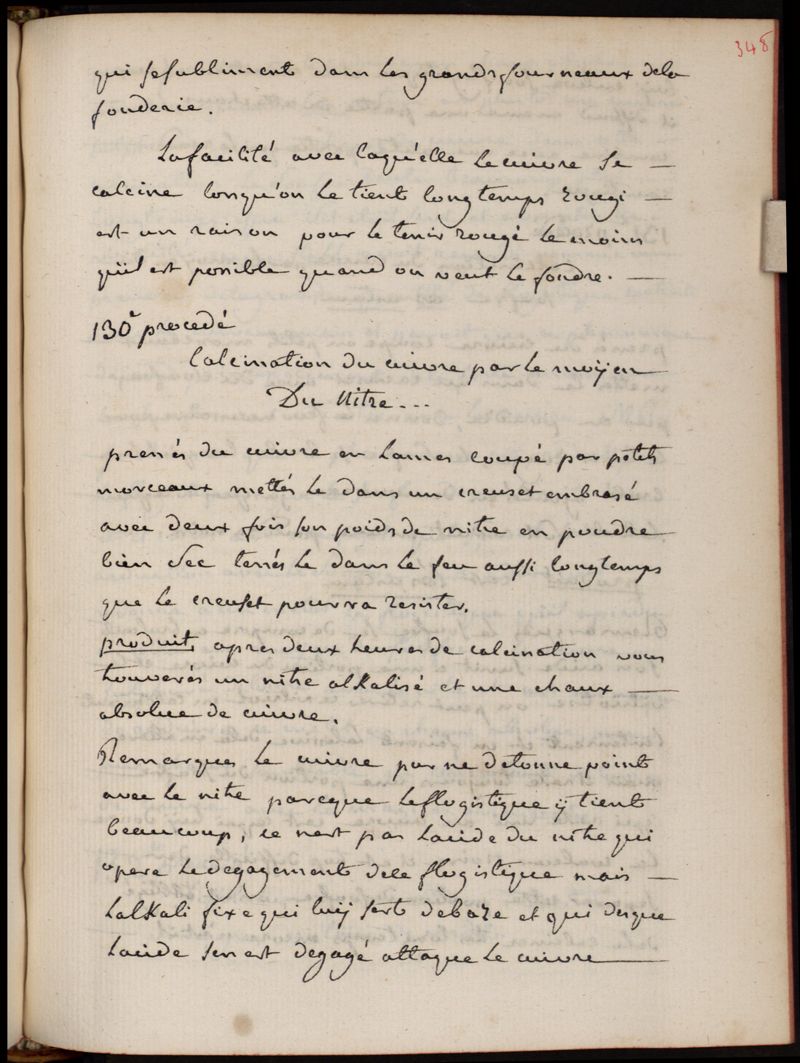 348
qui se subliment dans les grands fourneaux dela
fonderie.
La facilité avec laquelle Le cuivre se —
calcine lorsqu'on Le tient longtemps rougi —
est un raison pour le tenir rougé le moins
qu'il est possible quand on veut le fondre. —
130e procedé
Calcination du cuivre par le moÿen
Du Nitre...
prenés du cuivre en Lames coupé par petits
morceaux mettés le dans un creuset embrasé
avec deux fois son poids de nitre en poudre
bien sec tenés le dans le feu aussi longtemps
que le creuset pourra resister.
produit apres deux heures de calcination vous
trouverés un nitre alkalisé et une chaux —
absolue de cuivre.
Remarques le cuivre pur ne detonne point
avec le nitre parceque leflogistique ÿ tient
beaucoup, ce nest pas Lacide du nitre qui
opere Le degagement dele flogistique mais —
Lalkali fixe qui luÿ sert de baze et qui desque
Lacide sen est degagé attaque le cuivre —